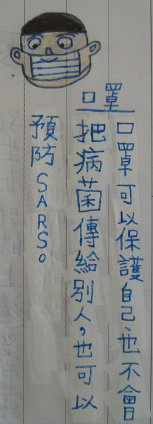 口罩
口罩可以保護自己也不會
把病菌傳給別人,也可以
預防SARS。